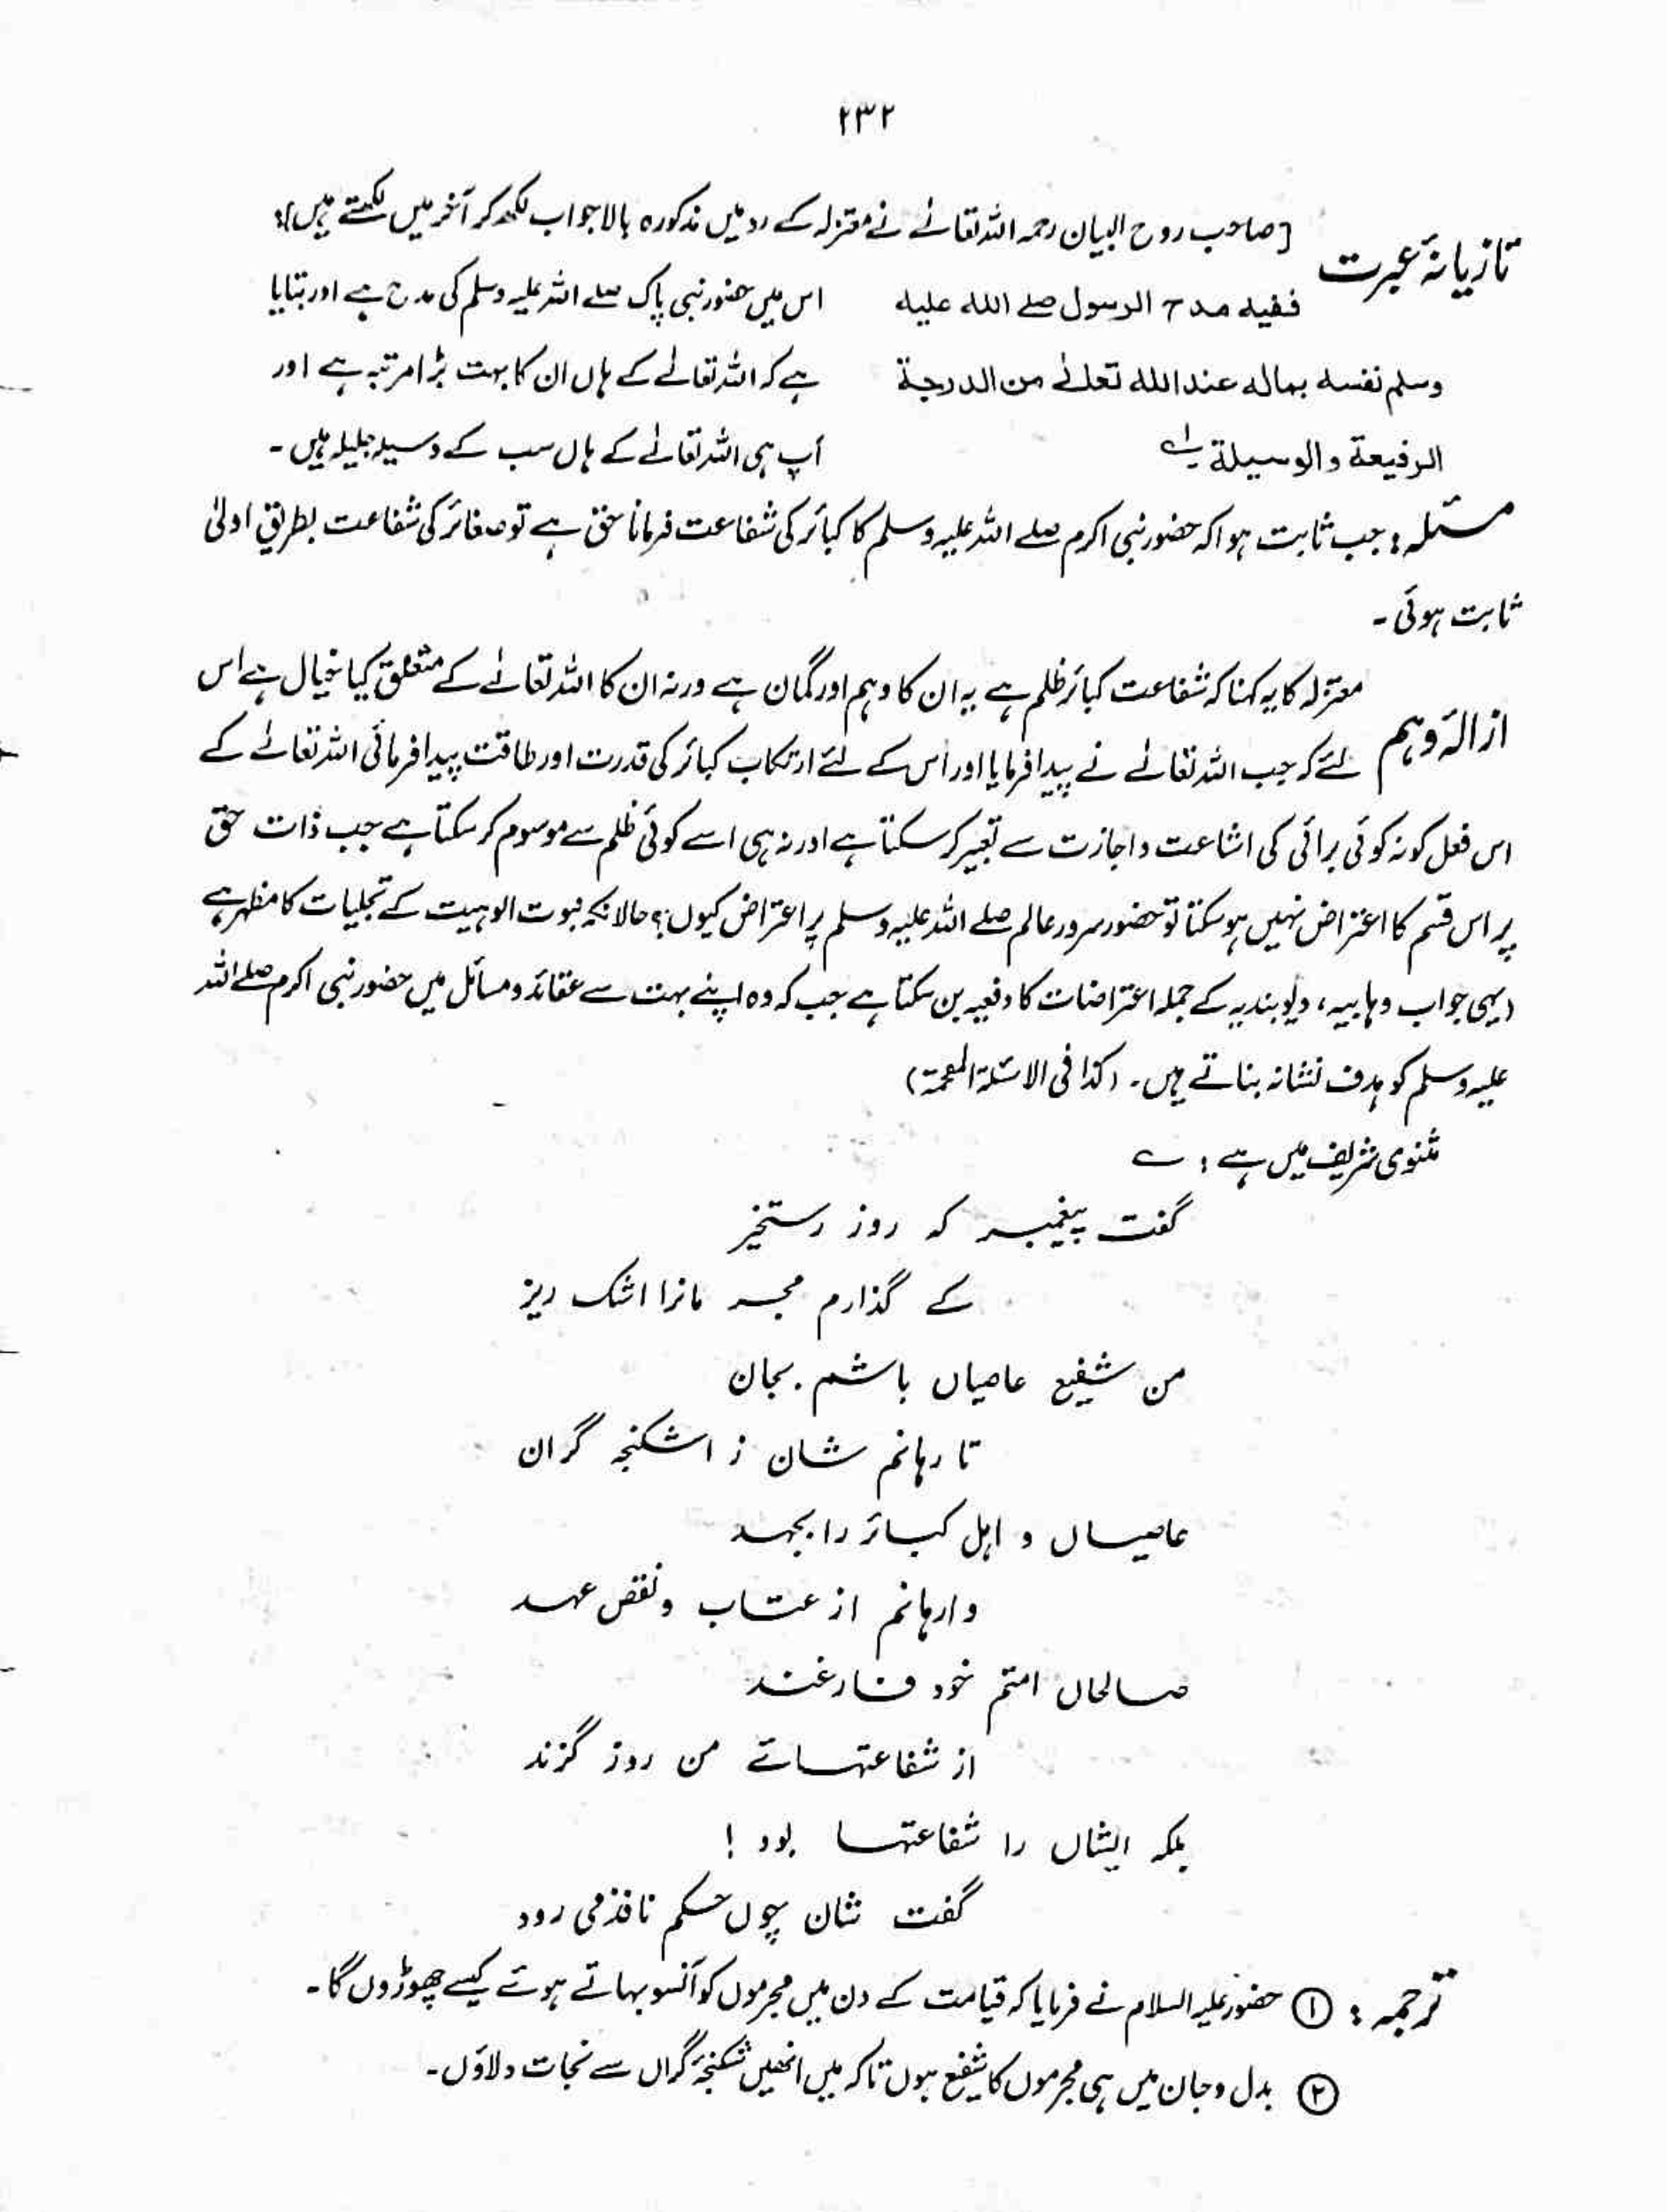 ٢٣٢
تازیانۂ عبرت [صاحب روح البیان رحمہ اللہ تعالےٰ نے معتزلہ کے رد میں مذکورہ بالا جواب لکھ کر آخر میں لکھتے ہیں]:
ففیہ مدح الرسول صلے اللہ علیہ اس میں حضور نبی پاک صلے اللہ علیہ وسلم کی مدح ہے اور بتایا
وسلم نفسہ بمالہ عند اللہ تعلےٰ من الدرجة ہے کہ اللہ تعالےٰ کے ہاں ان کا بہت بڑا مرتبہ ہے اور
الرفیعة والوسیلة لے آپ ہی اللہ تعالےٰ کے ہاں سب کے وسیلہ جلیلہ ہیں۔
مسئلہ : جب ثابت ہوا کہ حضور نبی اکرم صلے اللہ علیہ وسلم کا کبائر کی شفاعت فرمانا حق ہے تو صغائر کی شفاعت بطریق اولیٰ
ثابت ہوئی۔
ازالۂ وہم معتزلہ کا یہ کہنا کہ شفاعت کبائر ظلم ہے یہ ان کا وہم اور گمان ہے ورنہ ان کا اللہ تعالےٰ کے متعلق کیا خیال ہے اس
لئے کہ جب اللہ تعالےٰ نے پیدا فرمایا اور اس کے لئے ارتکاب کبائر کی قدرت اور طاقت پیدا فرمائی اللہ تعالےٰ کے
اس فعل کو نہ کوئی برائی کی اشاعت و اجازت سے تعبیر کر سکتا ہے اور نہ ہی اسے کوئی ظلم سے موسوم کر سکتا ہے جب ذات حق
پر اس قسم کا اعتراض نہیں ہو سکتا تو حضور سرور عالم صلے اللہ علیہ وسلم پر اعتراض کیوں؟ حالانکہ نبوت الوہیت کے تجلیات کا مظہر ہے
(یہی جواب وہابیہ، دیوبندیہ کے جملہ اعتراضات کا دفعیہ بن سکتا ہے جب کہ وہ اپنے بہت سے عقائد و مسائل میں حضور نبی اکرم صلے اللہ
علیہ وسلم کو ہدف نشانہ بناتے ہیں۔ (کذا فی الاسئلة المقحمة)
مثنوی شریف میں ہے : ے
گفت پیغمبر کہ روز رستخیز
کے گذارم مجرمانرا اشک ریز
من شفیع عاصیاں باشم بجان
تا رہانم شان ز اشکنجہ گران
عاصیاں و اہل کبائر را بجہد
وارہانم از عتاب و نقص عہد
صالحاں امتم خود فارغند
از شفاعتہاتے من روز گزند
بلکہ ایشاں را شفاعتہا بود !
گفت شان چوں حکم نافذ می رود
ترجمہ : ① حضور علیہ السلام نے فرمایا کہ قیامت کے دن میں مجرموں کو آنسو بہاتے ہوئے کیسے چھوڑوں گا۔
② بدل و جان میں ہی مجرموں کا شفیع ہوں تاکہ میں انھیں شکنجۂ گراں سے نجات دلاؤں۔